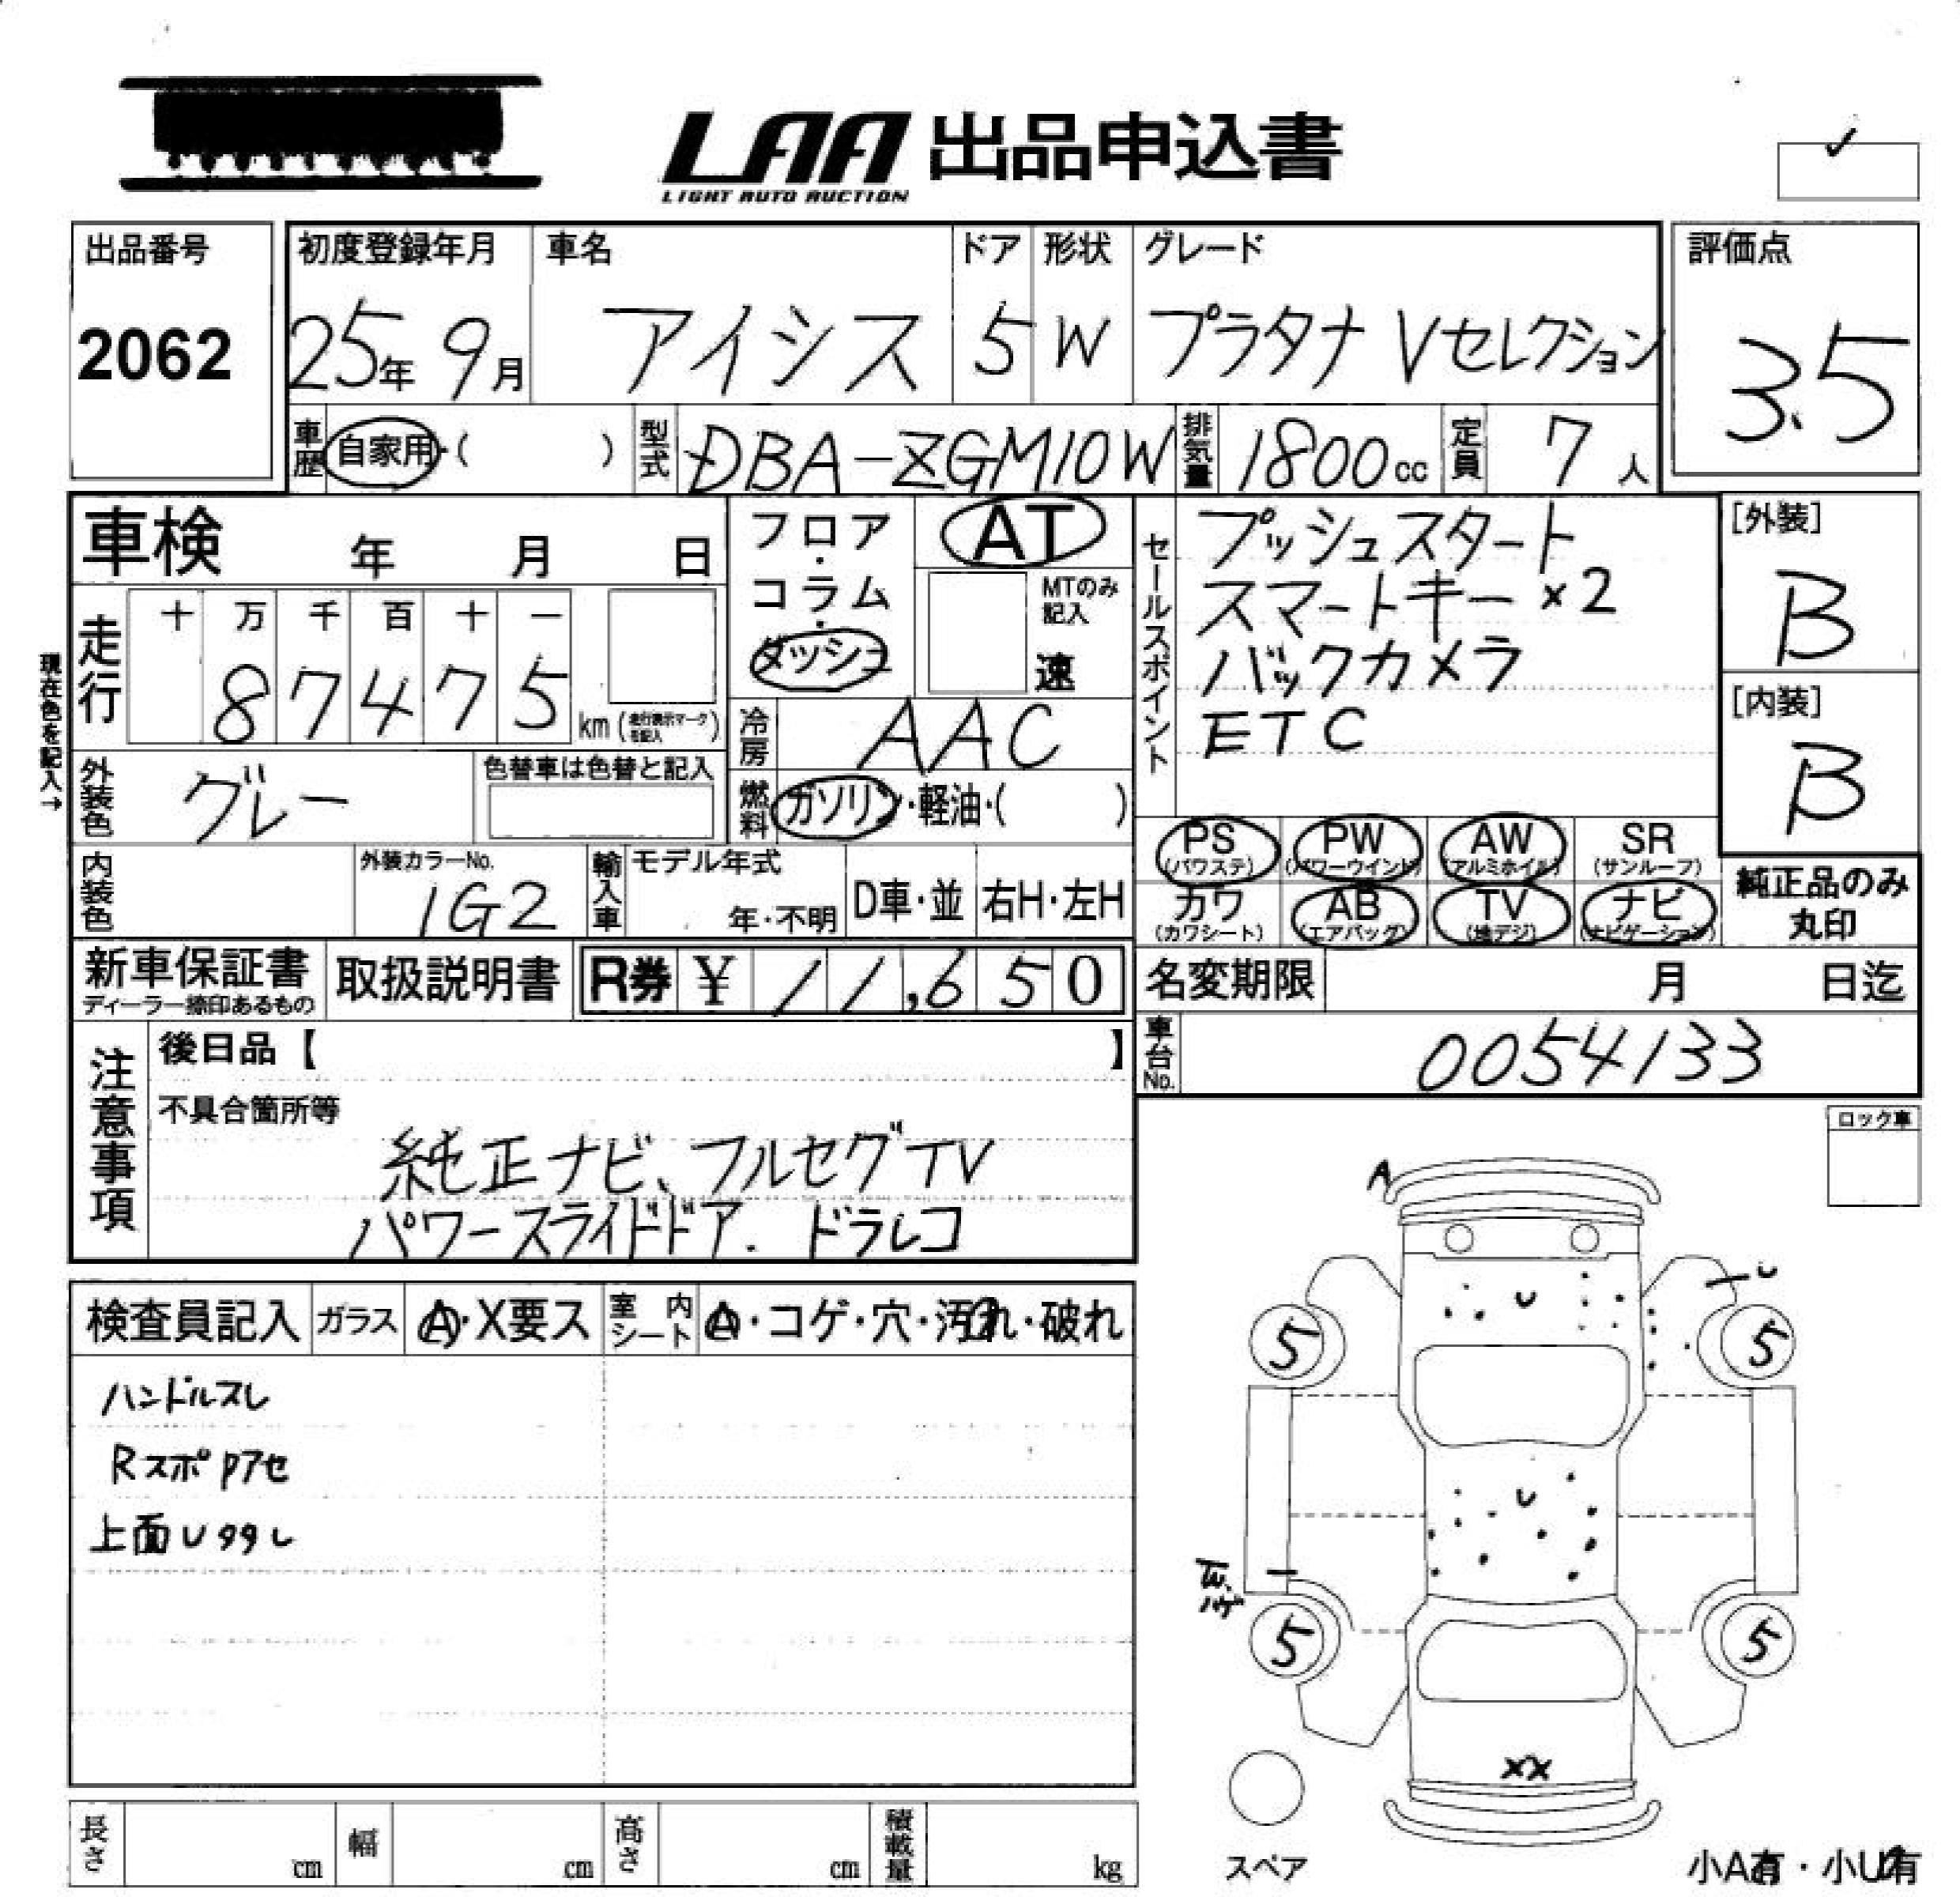 LAA 出品申込書
LIGHT AUTO AUCTION
出品番号
2062
初度登録年月 車名 ドア 形状 グレード
25年 9月 アイシス 5 W プラタナ Vセレクション
評価点
3.5
車歴 自家用・( ) 型式 DBA-ZGM10W 排気量 1800cc 定員 7人
車検 年 月 日
フロア・コラム・ダッシュ
AT
MTのみ記入
速
セールスポイント
プッシュスタート
スマートキー×2
バックカメラ
ETC
[外装]
B
[内装]
B
現在色を記入→
走行 十 万 千 百 十 一
87475 km (走行表示マークを記入)
冷房 AAC
外装色 グレー 色替車は色替と記入
燃料 ガソリン・軽油・( )
PS (パワステ) PW (パワーウインド) AW (アルミホイル) SR (サンルーフ)
カワ (カワシート) AB (エアバッグ) TV (地デジ) ナビ (ナビゲーション)
純正品のみ
丸印
内装色 外装カラーNo. 1G2 輸入車 モデル年式 年・不明 D車・並 右H・左H
新車保証書 取扱説明書 R券 ¥ 11,650
ディーラー捺印あるもの
名変期限 月 日迄
車台No. 0054133
注意事項
後日品【 】
不具合箇所等
純正ナビ、フルセグTV
パワースライドドア. ドラレコ
ロック車
検査員記入 ガラス A・X要ス 室内シート A・コゲ・穴・汚れ・破れ
ハンドルスレ
Rスポpアセ
上面U99し
A
U
U
5 5
U
ハゲ
5 5
XX
スペア
小A有・小U有
長さ cm 幅 cm 高さ cm 積載量 kg